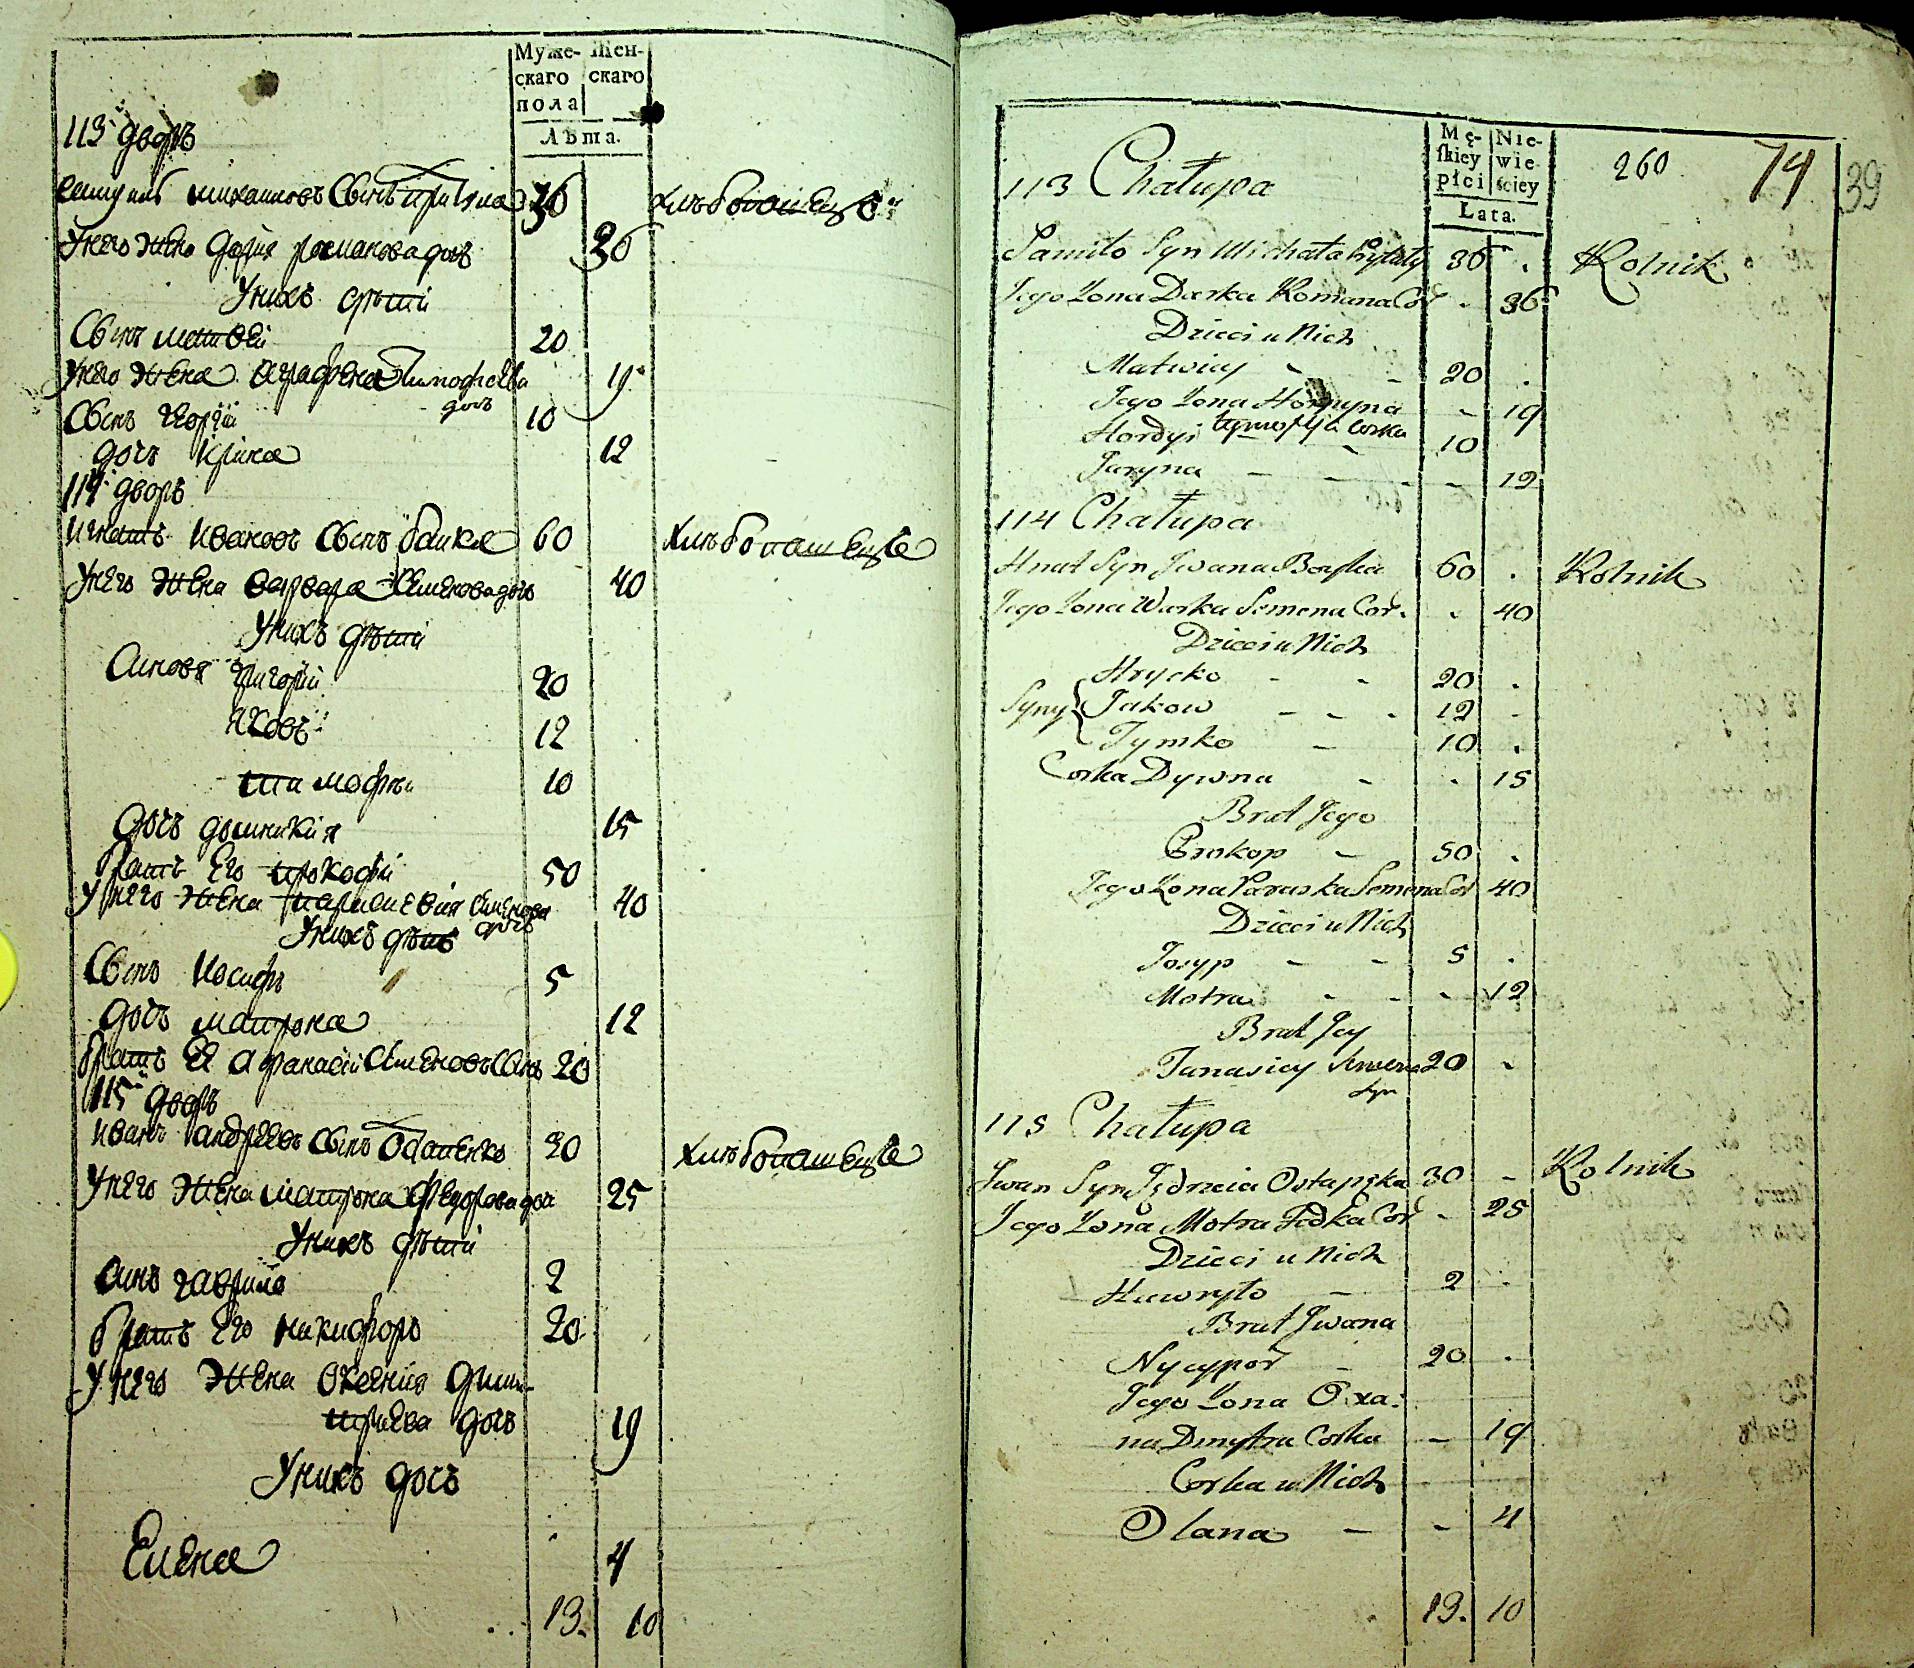 Муже-
скаго
пола
Жен-
скаго
Лѣта.
113 дворъ
Михаиловъ Сынъ 36 хлѣбопашецъ
У него жена Дарія Романова дочь 36
У нихъ дѣти
Сынъ Матвѣй 20
У него жена Аграфена Тимофеева 19
дочь
Сынъ Георгій 10
дочь Ирина 12
114 дворъ
Игнатъ Ивановъ Сынъ Байка 60 хлѣбопашецъ
У него жена Варвара Семенова дочь 40
У нихъ дѣти
Синовя Григорій 20
Яковъ 12
Тимофѣй 10
дочь Домникія 15
братъ Его Прокофій 50
У него жена Параскевія Семенова 40
дочь
У нихъ дѣти
Сынъ Иосифъ 5
дочь Матрона 12
братъ Ея Афанасій Семеновъ Сынъ 20
115 дворъ
Иванъ Андреевъ Сынъ Остапенко 30 хлѣбопашецъ
У него жена Матрона Федорова дочь 25
У нихъ дѣти
Синъ Гаврило 2
братъ Его Никифоръ 20
У него жена Оксенія Дми-
тріева дочь 19
У нихъ дочь
Елена 4
13. 10
Mę-
skiey
płci
Nie-
wie-
ściey
Lata.
260 74 39
113 Chałupa
Samiło Syn Michała 36 . Rolnik
Jego Żona Darka Romana Cor - 36
Dzieci u Nich
Matwiey - - 20 .
Jego Żona Horpyna - 19
Tymofija Corka
Hordyi - 10
Jaryna - - - - 12
114 Chałupa
Hnat Syn Jwana Bayka 60 . Rolnik
Jego Żona Warka Semena Cor. - 40
Dzieci u Nich
Hrycko - - 20 .
Syny Jakow - - - 12 -
Tymko - 10 .
Corka Dywna - - 15
Brat Jego
Prokop - 50 .
Jego Żona Paraska Semena Cor 40
Dzieci u Nich
Josyp - - 5 .
Motra - - - 12
Brat Jey
Tanasiey Semena 20 -
Syn
115 Chałupa
Jwan Syn Jędrzeia Ostapęka 30 - Rolnik
Jego Żona Motra Fedka Cor - 25
Dzieci u Nich
Hawryło - 2 .
Brat Jwana
Nycypor - 20 .
Jego Żona Oxa:
na Dmytra Corka - 19
Corka u Nich
Olana - - 4
13. 10